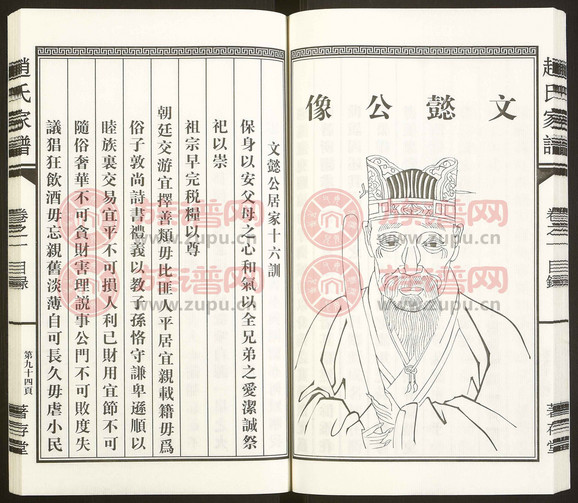 趙氏家譜
卷之一 目錄
著存堂
文懿公像
文懿公居家十六訓
保身以安父母之心和氣以全兄弟之愛潔誠祭
祀以崇
祖宗早完税糧以尊
朝廷交游宜擇善類毋比匪人平居宜親載籍毋爲
俗子敦尚詩書禮義以教子孫恪守謙卑遜順以
睦族裏交易宜平不可損人利己財用宜節不可
隨俗奢華不可貪財害理説事公門不可敗度失
議猖狂飲酒毋忘親舊淡薄自可長久毋虐小民
趙氏家譜
卷之一 目錄
第九十四頁
著存堂
族譜网
www.zupu.cn
族譜网
www.zupu.cn
族譜网
www.zupu.cn